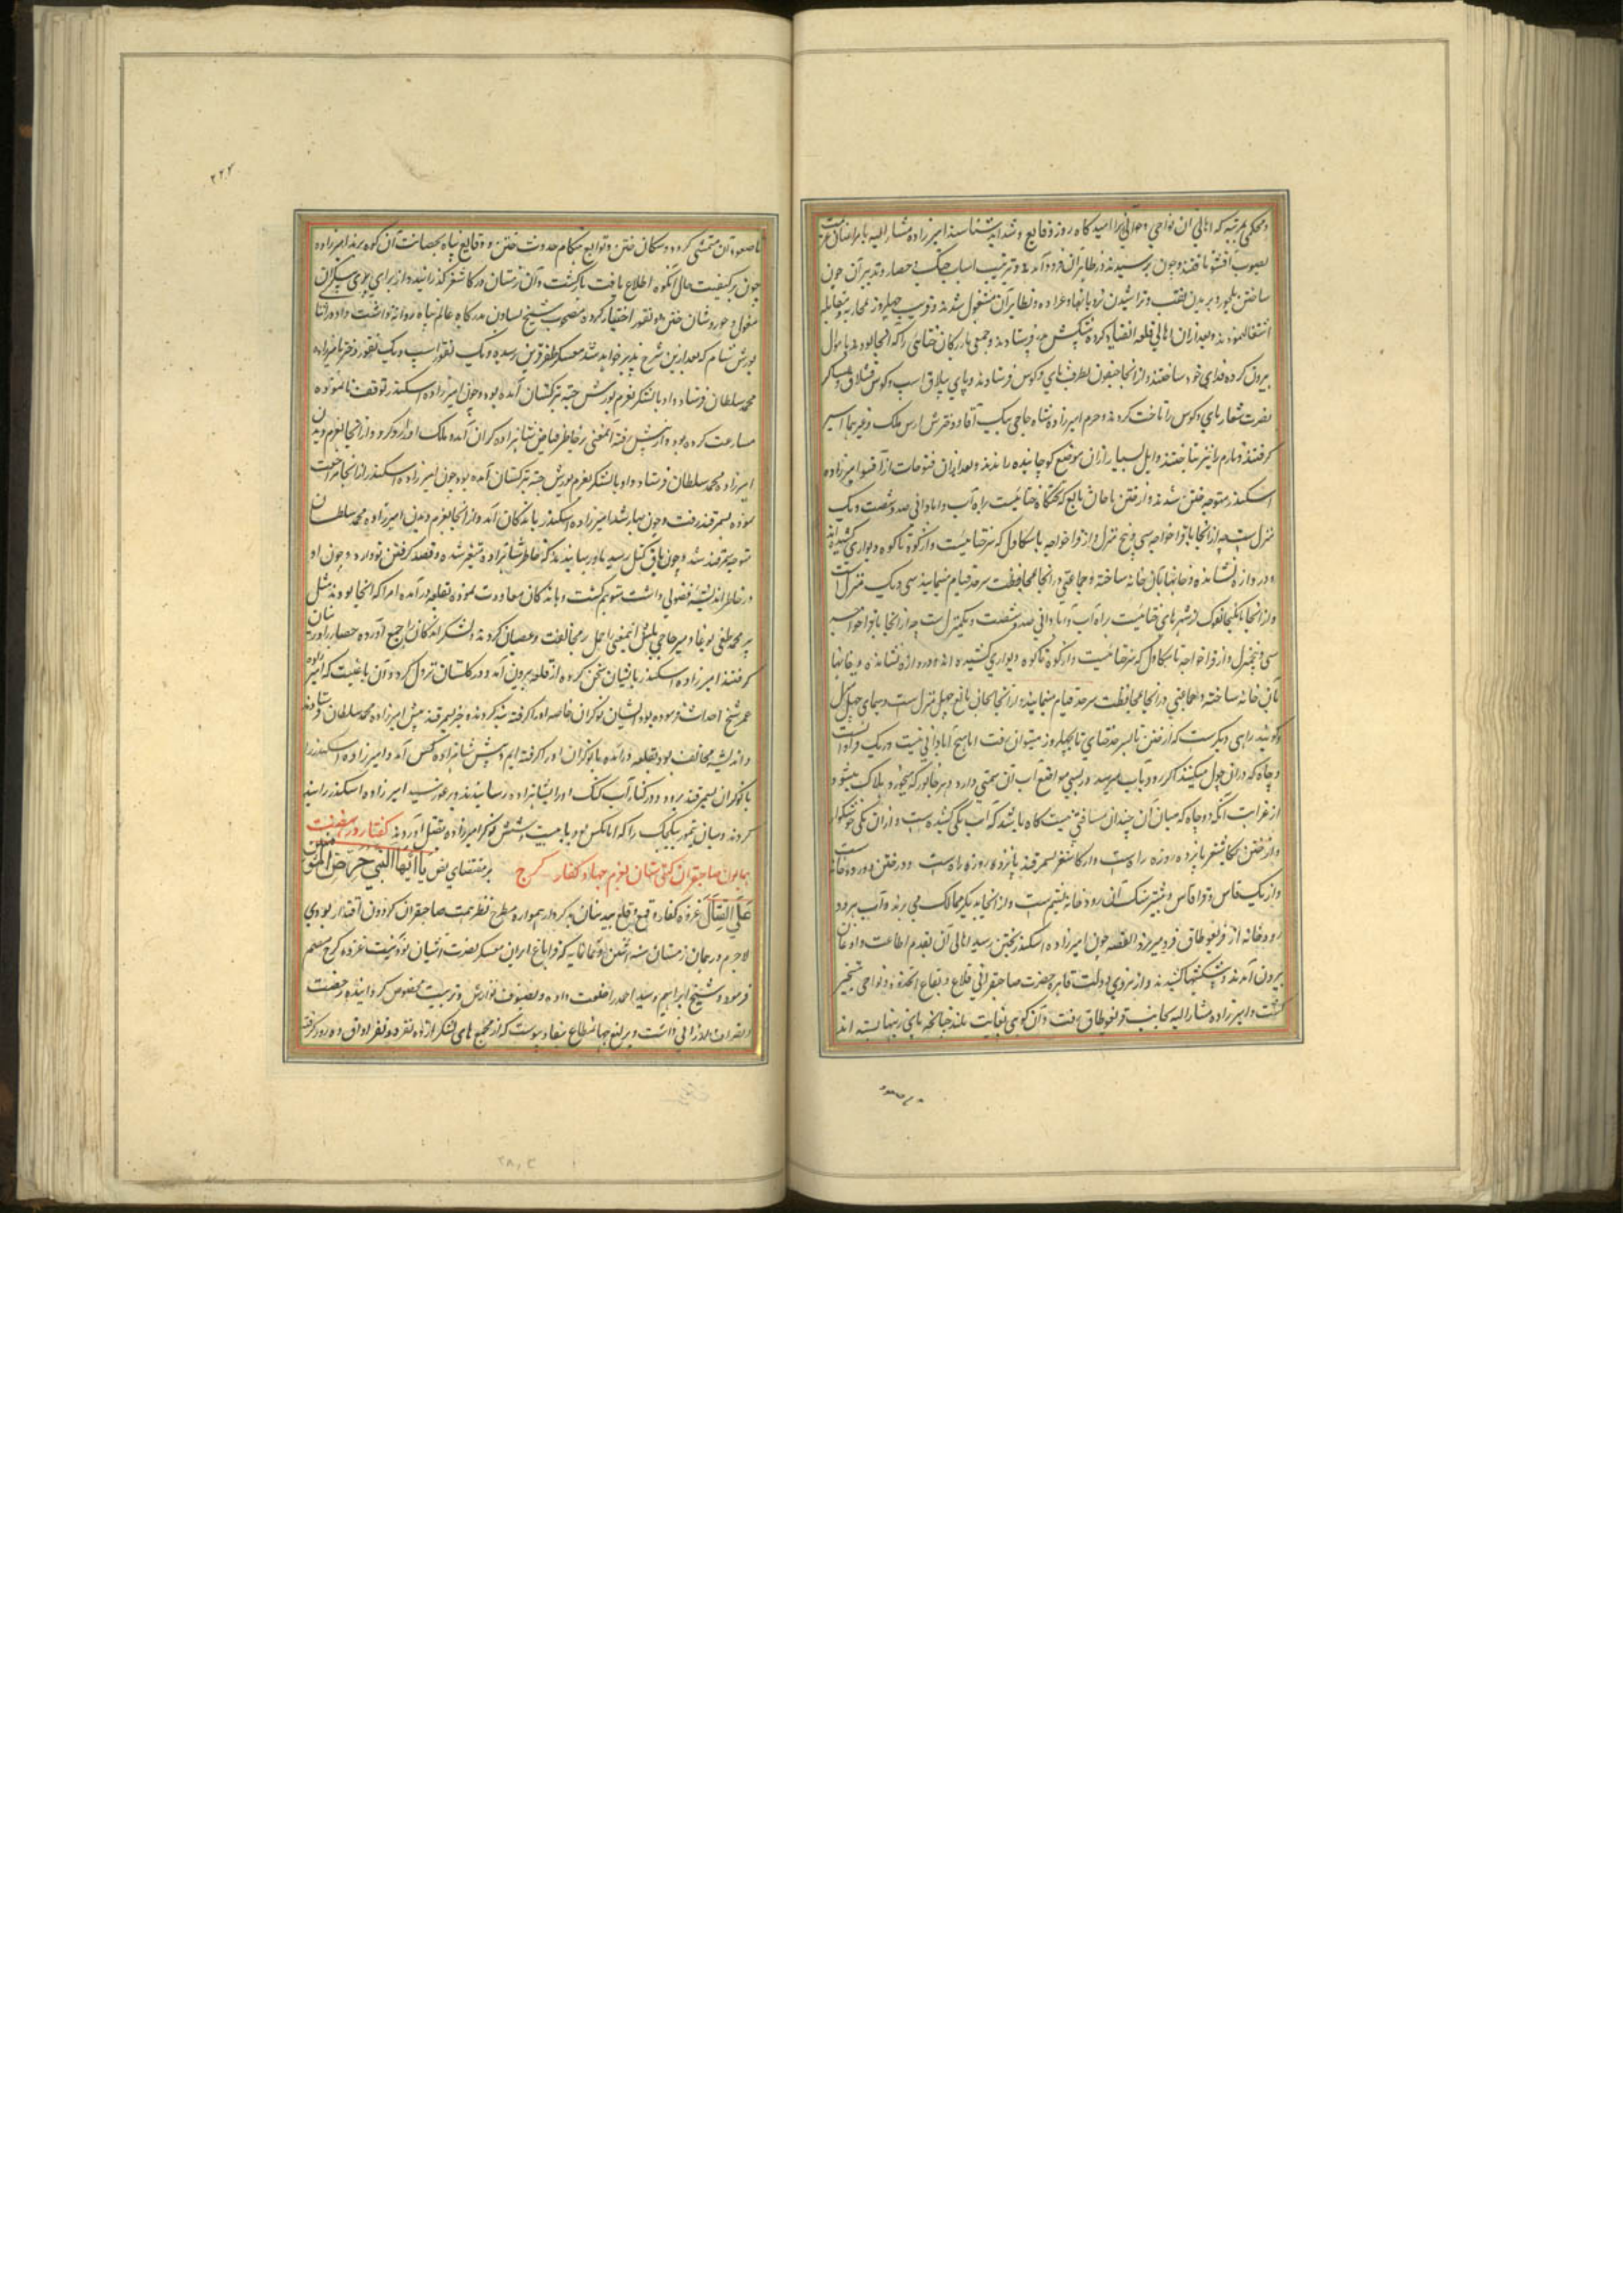 ومحکمی مرتبه که اهالی ان نواحی وحوالی انرا امید کاه روز وقایع وشداید شناسند امیرزاده مشار الیه با مراضان
بصوب اقسو تافتند وجون برسیدند در ظاهر آن فرود آمدند وترتیب اسباب جنک وحصار وتدبیر آن جون
ساختن ملجور وبریدن نقب وتراشیدن نردبانها وعراده ونظایر آن مشغول شدند وقریب جهل روز محاربه ومقابله
اشتغال نمودند وبعد از ان اهالی قلعه انقیاد کرده پیشکش فرستادند وجمعی بازرکان ختائی را که انجا بودند با اموال
بیرون کرده فدای خود ساختند واز انجا جیقون بطرف بای وکوس فرستادند وبای ییلاق است وکوس قشلاق وعساکر
نصرت شعار بای وکوس را تاخت کردند وحرم امیرزاده شاه حاجی ملک آقا ودخترش ارس ملک وغیرهما اسیر
کرفتند وتارم را نیز تاختند وایل بسیار از ان موضع کوجانیده راندند وبعد از ان فتوحات از آقسو امیرزاده
اسکندر متوجه ختن شدند واز ختن تا خان بالیغ که تختکاه ختائیست راه آب وآبادانی صد وشصت ویک
منزل است جه از انجا تا قراخواجه سی وپنج منزل واز قراخواجه تا سکاول که سرحد ختائیست واز کوه تا کوه دیواری کشیده اند
ودروازه نشانده وخانها بان خانه ساخته وجماعتی در انجا بمحافظت سرحد قیام مینمایند سی ویک منزل است
واز انجا تا کنجانفو که از شهرهای ختائیست راه آب وآبادانی صد وشصت ویکمنزل است جه از انجا تا قراخواجه
سی وپنجمنزل واز قراخواجه تا سکاول که سرحد ختائیست واز کوه تا کوه دیواری کشیده اند ودروازه نشانده وخانها
بان خانه ساخته وجماعتی در انجا بمحافظت سرحد قیام مینمایند واز انجا تا خان بالیغ جهل منزل است وسمای جهل منزل
وکویند راهی دیکر هست که از ختن تا بسرحد ختای تا بجهل روز میتوان رفت اما هیچ آبادانی نیست وریک فراوانست
وجاه که در ان جول میکنند اکر زود باب میرسد در بسی مواضع آب آن سمیتی دارد وهر جانور که میخورد هلاک میشود
از غرایب آنکه دو جاه که میان آن جندان مسافتی نیست کاه باشد که آب یکی کشنده است واز ان یکی خوشکوار
واز ختن تا کاشغر پانزده روزه راه است واز کاشغر تا سمرقند پانزده روزه راه است ودر ختن دو رودخانه است
واز یک قاش وقرا قاش وبیشتر سنک آن رودخانه یشم است واز انجا بدیکر ممالک می برند وآب هر دو
رودخانه از قرانغو طاق فرود میریزد القصه جون امیرزاده اسکندر بختن رسید اهالی آن بقدم اطاعت واذعان
بیرون آمدند وپیشکشها کشیدند واز نیروی دولت قاهره حضرت صاحبقرانی قلاع وبقاع انحدود ونواحی تسخیر
کشت وامیرزاده مشار الیه بجانب قرانغو طاق رفت وآن کوهی بغایت بلند جنانجه پای نردبانها بسته اند
تا صعود
۲۲۴
تا صعود بران متمشی کردد وسکان ختن وتوابع هنکام حدوث فتن ووقایع پناه بحصانت آن کوه برند امیرزاده
جون بر کیفیت حال آنکوه اطلاع یافت بازکشت وآن زمستان در کاشغر کذرانید واز برای پری پیکران
مغول وحوروشان ختن دو نقوز اختیار کرده مصحوب شیخ یساول بدرکاه عالم پناه روانه داشت واو در اثنا
یورش شام که بعد از این شرح پذیر خواهد شد بمعسکر ظفر قرین رسید ویک نقوز اسب ویک نقوز دختر بامیرزاده
محمد سلطان فرستاد واو با لشکر بعزم یورش جته بترکستان آمده بود وجون امیرزاده اسکندر توقف نانموده
مسارعت کرده بود واز پیش رفته آنمعنی بر خاطر فیاض شاهزاده کران آمد
امیرزاده محمد سلطان فرستاد واو با لشکر بعزم یورش جته بترکستان آمده بود جون امیرزاده اسکندر از انجا مراجعت
نموده بسمرقند رفت وجون بهار شد امیرزاده اسکندر باندکان آمد واز انجا بعزم دیدن امیرزاده محمد سلطان
متوجه سمرقند شد وجون باق کتل رسید باو رسانیدند که خاطر شاهزاده متغیر شده وقصد کرفتن تو دارد وجون او
در خاطر اندیشه فضولی داشت متوهم کشت وباندکان معاودت نموده بقلعه در آمد امرا که انجا بودند مثل
پیر محمد طغی بوغا ومیر حاجی ملش اینمعنی را حمل بر مخالفت وعصیان کردند ولشکر اندکان را جمع آورده حصار را در میان
کرفتند امیرزاده اسکندر با ایشان سخن کرده از قلعه بیرون آمد ودر کلستان نزول کرد وآن باغیست که امیرزاده
عمر شیخ احداث فرموده بود ایشان نوکران خاصه او را کرفته بند کردند وخبر بسمرقند پیش امیرزاده محمد سلطان فرستادند
واندیشه مخالفت بود بقلعه درآمده با نوکران او را کرفته ایم وپیش شاهزاده کس آمد وامیرزاده اسکندر را
با نوکران بسمرقند برود ودر کنار آب کنک او را بشاهزاده رسانیدند ودر غور رسید امیرزاده اسکندر را بند
کردند وبیان تیمور بیکجک را که اتابکش بود با بیست وشش نوکر امیرزاده بقتل آوردند کفتار در نهضت
همایون صاحبقران کیتی ستان بعزم جهاد کفار کرج بر مقتضای نص یا أیها النبی حرض المؤمنین
علی القتال غزوه کفار وقمع وقلع بیدینان بدکردار همواره مطمح نظر همت صاحبقران کردون اقتدار بودی
لاجرم در همان زمستان سنه اثنین وثمانمایه که قراباغ اران معسکر نصرت آشیان بود نیت غزوه کرج مصمم
فرموده وشیخ ابراهیم وسید احمد را خلعت داده وبصنوف نوازش وتربیت مخصوص کردانیده رخصت
انصراف ارزانی داشت ویرلیغ جهانمطاع بنفاذ پیوست که از مجموع های لشکر از ده نفر سه نفر